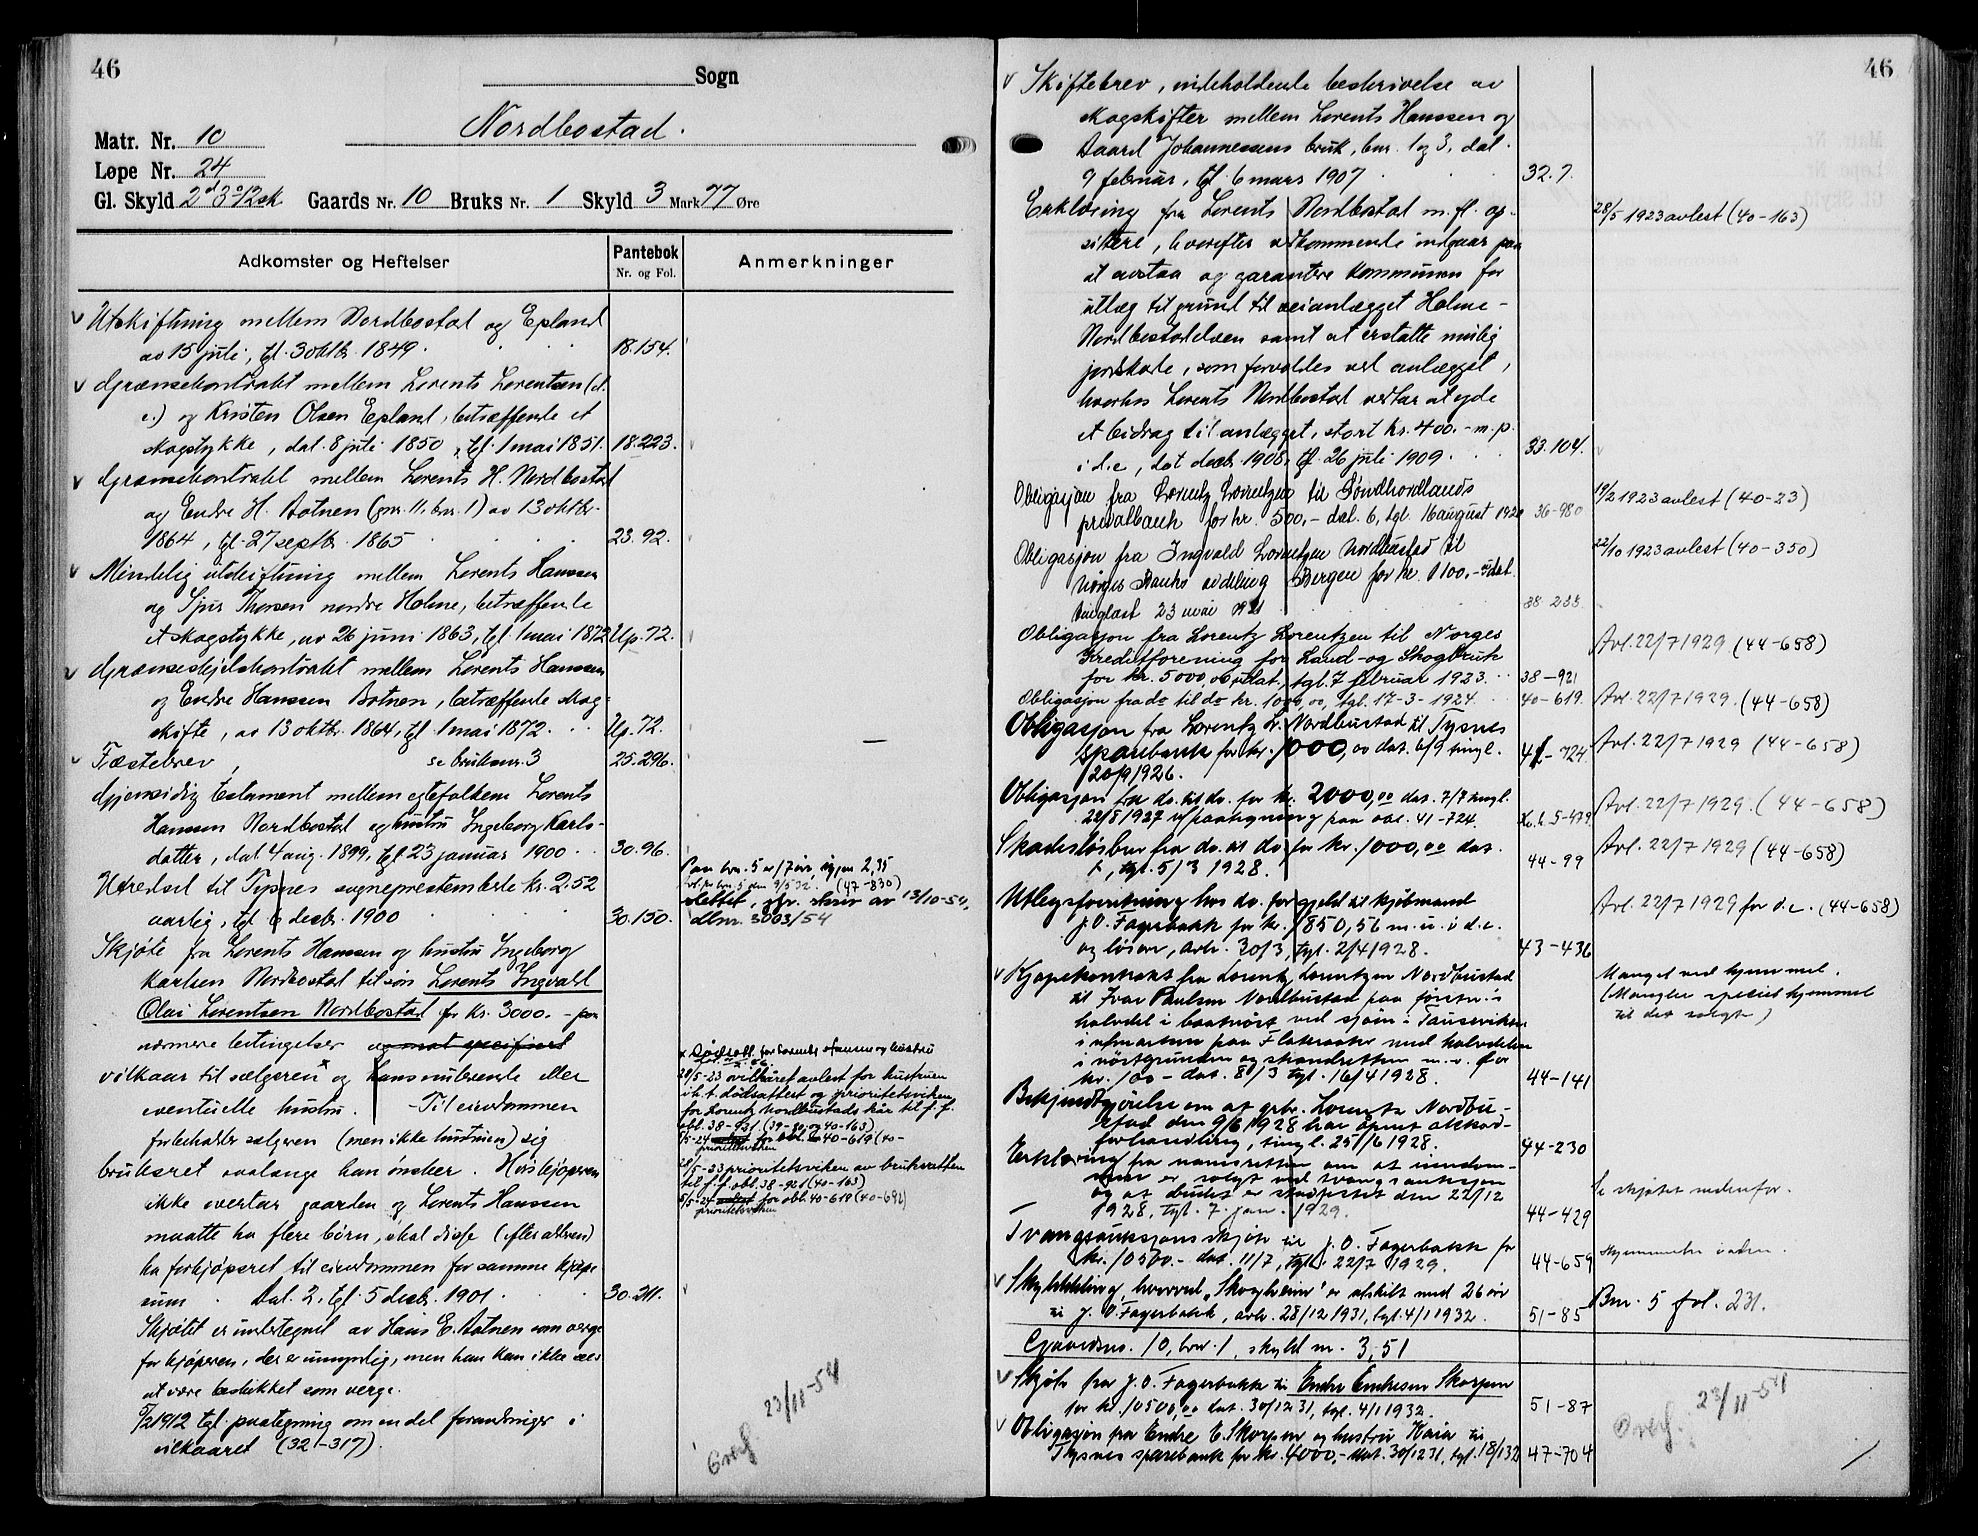 46
Sogn
Nordbostad.
Matr. Nr. 10
Løpe Nr. 24
Gl. Skyld 2 d 3 o 12 sk Gaards Nr. 10 Bruks Nr. 1 Skyld 3 Mark 77 Øre
Adkomster og Heftelser
Pantebok
Nr. og Fol.
Anmerkninger
Utskiftning mellem Nordbostad og Epland
av 15 juli, tgl. 3 oktbr. 1849. 18.154.
Grænsekontrakt mellem Lorents Lorentsen (d.
e.) og Kristen Olsen Epland, betræffende et
skogstykke, dat. 8 juli 1850, tgl. 1 mai 1851. 18.223.
Grænsekontrakt mellem Lorents H. Nordbostad
og Endre H. Botnen (gnr. 11, bnr. 1) av 13 oktbr.
1864, tgl. 27 septbr. 1865 23.92.
Mindelig utskiftning mellem Lorents Hanssen
og Sjur Thorsen nordre Holme, betræffende
et skogstykke, av 26 juni 1863, tgl. 1 mai 1872 Up. 72.
Grænseskjelskontrakt mellem Lorents Hanssen
og Endre Hanssen Botnen, betræffende skog-
skifte, av 13 oktbr. 1864, tgl. 1 mai 1872. Up. 72.
Fæstebrev, se bruksnr. 3 25.296.
Gjensidig testament mellem egtefolkene Lorents
Hanssen Nordbostad og hustru Ingeborg Karls-
datter, dat. 4 aug. 1899, tgl. 23 januar 1900. 30.96.
Utredsel til Tysnes sogneprestembede kr. 2.52
aarlig, tgl. 6 decbr. 1900 30.150.
Paa bnr. 5 er 17 øre, igjen 2,35
(47-830)
slettet, jfr. skriv av 13/10-54,
dbnr. 3003/54
Skjøte fra Lorents Hanssen og hustru Ingeborg
Karlsen Nordbostad til søn Lorents Ingvald
Olai Lorentsen Nordbostad for kr. 3000.- paa
nærmere betingelser og mot specificert
vilkaar til sælgeren x og hans nulevende eller
eventuelle hustru. - Til eiendommen
forbeholder sælgeren (men ikke hustruen) sig
bruksret saalænge han ønsker. Hvis kjøperen
ikke overtar gaarden og Lorents Hanssen
maatte ha flere børn, skal disse (efter alderen)
ha forkjøpsret til eiendommen for samme kjøpe-
sum. Dat. 2, tgl. 5 decbr. 1901. 30.211.
Skjøtet er undertegnet av Hans E. Botnen som verge
for kjøperen, der er umyndig, men han kan ikke sees
at være beskikket som verge.
5/2 1912 tgl. paategning om en del forandringer i
vilkaaret (32-317).
x Dødsatt. for Lorents Hansen og hustru
28/5-23 vilkåret avlest for hustruen
i h. t. dødsattest og prioritetsviken
for Lorentz Nordbustads kår til f. f.
obl. 38-921 (39-80 og 40-163)
5/5-24 for obl. 40-619 (40-
prioritetsviken
28/5-23 prioritetsviken av bruksretten
til f. f. obl. 38-921 (40-163)
5/5-24 for obl. 40-619 (40-692)
prioritetsviken
Overf. 23/11-54
46
Skiftebrev, indeholdende beskrivelse av
skogskifter mellem Lorents Hanssen og
Baard Johannessens bruk, bnr. 1 og 3, dat.
9 februar, tgl. 6 mars 1907 32.7.
Erklæring fra Lorents Nordbostad m. fl. op-
sittere, hvorefter vedkommende indgaar paa
at avstaa og garantere kommunen for
utlæg til grund til veianlægget Holme-
Nordbostadelven samt at erstatte mulig
jordskade, som forvoldes ved anlægget,
hvorhos Lorents Nordbostad vedtar at yde
et bidrag til anlægget, stort kr. 400.- m. p.
i d. e, dat. decbr. 1908, tgl. 26 juli 1909. 33.104.
28/5 1923 avlest (40-163)
Obligasjon fra Lorentz Lorentzen til Søndhordlands
privatbank for kr. 500,- dat. 6, tgl. 16 august 1920 36-980
19/2 1923 avlest (40-23)
Obligasjon fra Ingvald Lorentzen Nordbustad til
Norges Banks avdeling Bergen for kr. 1100.- dat.
tinglæst 23 mai 1921 38-233
22/10 1923 avlest (40-350)
Obligasjon fra Lorentz Lorentzen til Norges
Kreditforening for Land- og Skogbruk
for kr. 5000,00, udat., tgl. 7 februar 1923. 38-921
Avl. 22/7 1929 (44-658)
Obligasjon fra do til do kr. 1000,00, tgl. 17-3-1924 40-619.
Avl. 22/7 1929. (44-658)
Obligasjon fra Lorentz L. Nordbustad til Tysnes
Sparebank for kr. 1000,00 dat. 6/9 tingl.
20/9 1926. 41-724
Avl. 22/7 1929 (44-658)
Obligasjon fra do. til do. for kr. 2000,00 dat. 7/7 tingl.
22/8 1927 v/ paategning paa obl. 41-724. 5-479.
Avl. 22/7 1929. (44-658)
Skadesløsbrev fra do. til do. for kr. 1000,00 dat.
1, tgl. 5/3 1928. 44-99
Avl. 22/7 1929 (44-658)
Utlegsforretning hos do. for gjeld til kjøbmand
J. O. Fagerbakk for kr. 1850,56 m. u. i d. e.
og løsøre, avh. 30/3, tgl. 2/4 1928. 43-436
Avl. 22/7 1929 for d. e. (44-658)
Kjøpekontrakt fra Lorentz Lorentzen Nordbustad
til Ivar Paulsen Nordbustad paa førstn.'s
halvdel i baatnøst ved sjøen i Tausevikene
i utmarken paa Flateraaker med halvdelen
i nøstgrunden og strandretten m. v. for
kr. 100- dat. 8/3 tgl. 16/4 1928. 44-141
Mangel ved hjemmel.
(Mangler special hjemmel
til det solgte)
Bekjendtgjørelse om at gbr. Lorentz Nordbu-
stad den 9/6 1928 har åpnet akkord-
forhandling, tingl. 25/6 1928. 44-230
Erklæring fra namsretten om at eiendom-
men er solgt ved tvangsauksjon
og at budet er stadfestet den 22/12
1928, tgl. 7. jan. 1929. 44-429
Se skjøtet nedenfor.
Tvangsauksjonsskjøte til J. O. Fagerbakk for
kr. 10500.- dat. 11/7, tgl. 22/7 1929. 44-659
Hjemmelen i orden.
Skylddeling, hvorved "Skogheim" er utskilt med 26 øre
til J. O. Fagerbakk, avh. 28/12 1931, tgl. 4/1 1932. 51-85
Bnr. 5 fol. 231.
Gaardsnr. 10, bnr. 1, skyld m. 3,51
Skjøte fra J. O. Fagerbakk til Endre Endresen Skorpen
for kr. 10500,00 dat. 30/12 31, tgl. 4/1 1932. 51-87
Obligasjon fra Endre E. Skorpen og hustru Kaia til
Tysnes sparebank for kr. 4000,- dat. 30/12 31, tgl. 18/1 32 47-704
Overf. 23/11-54